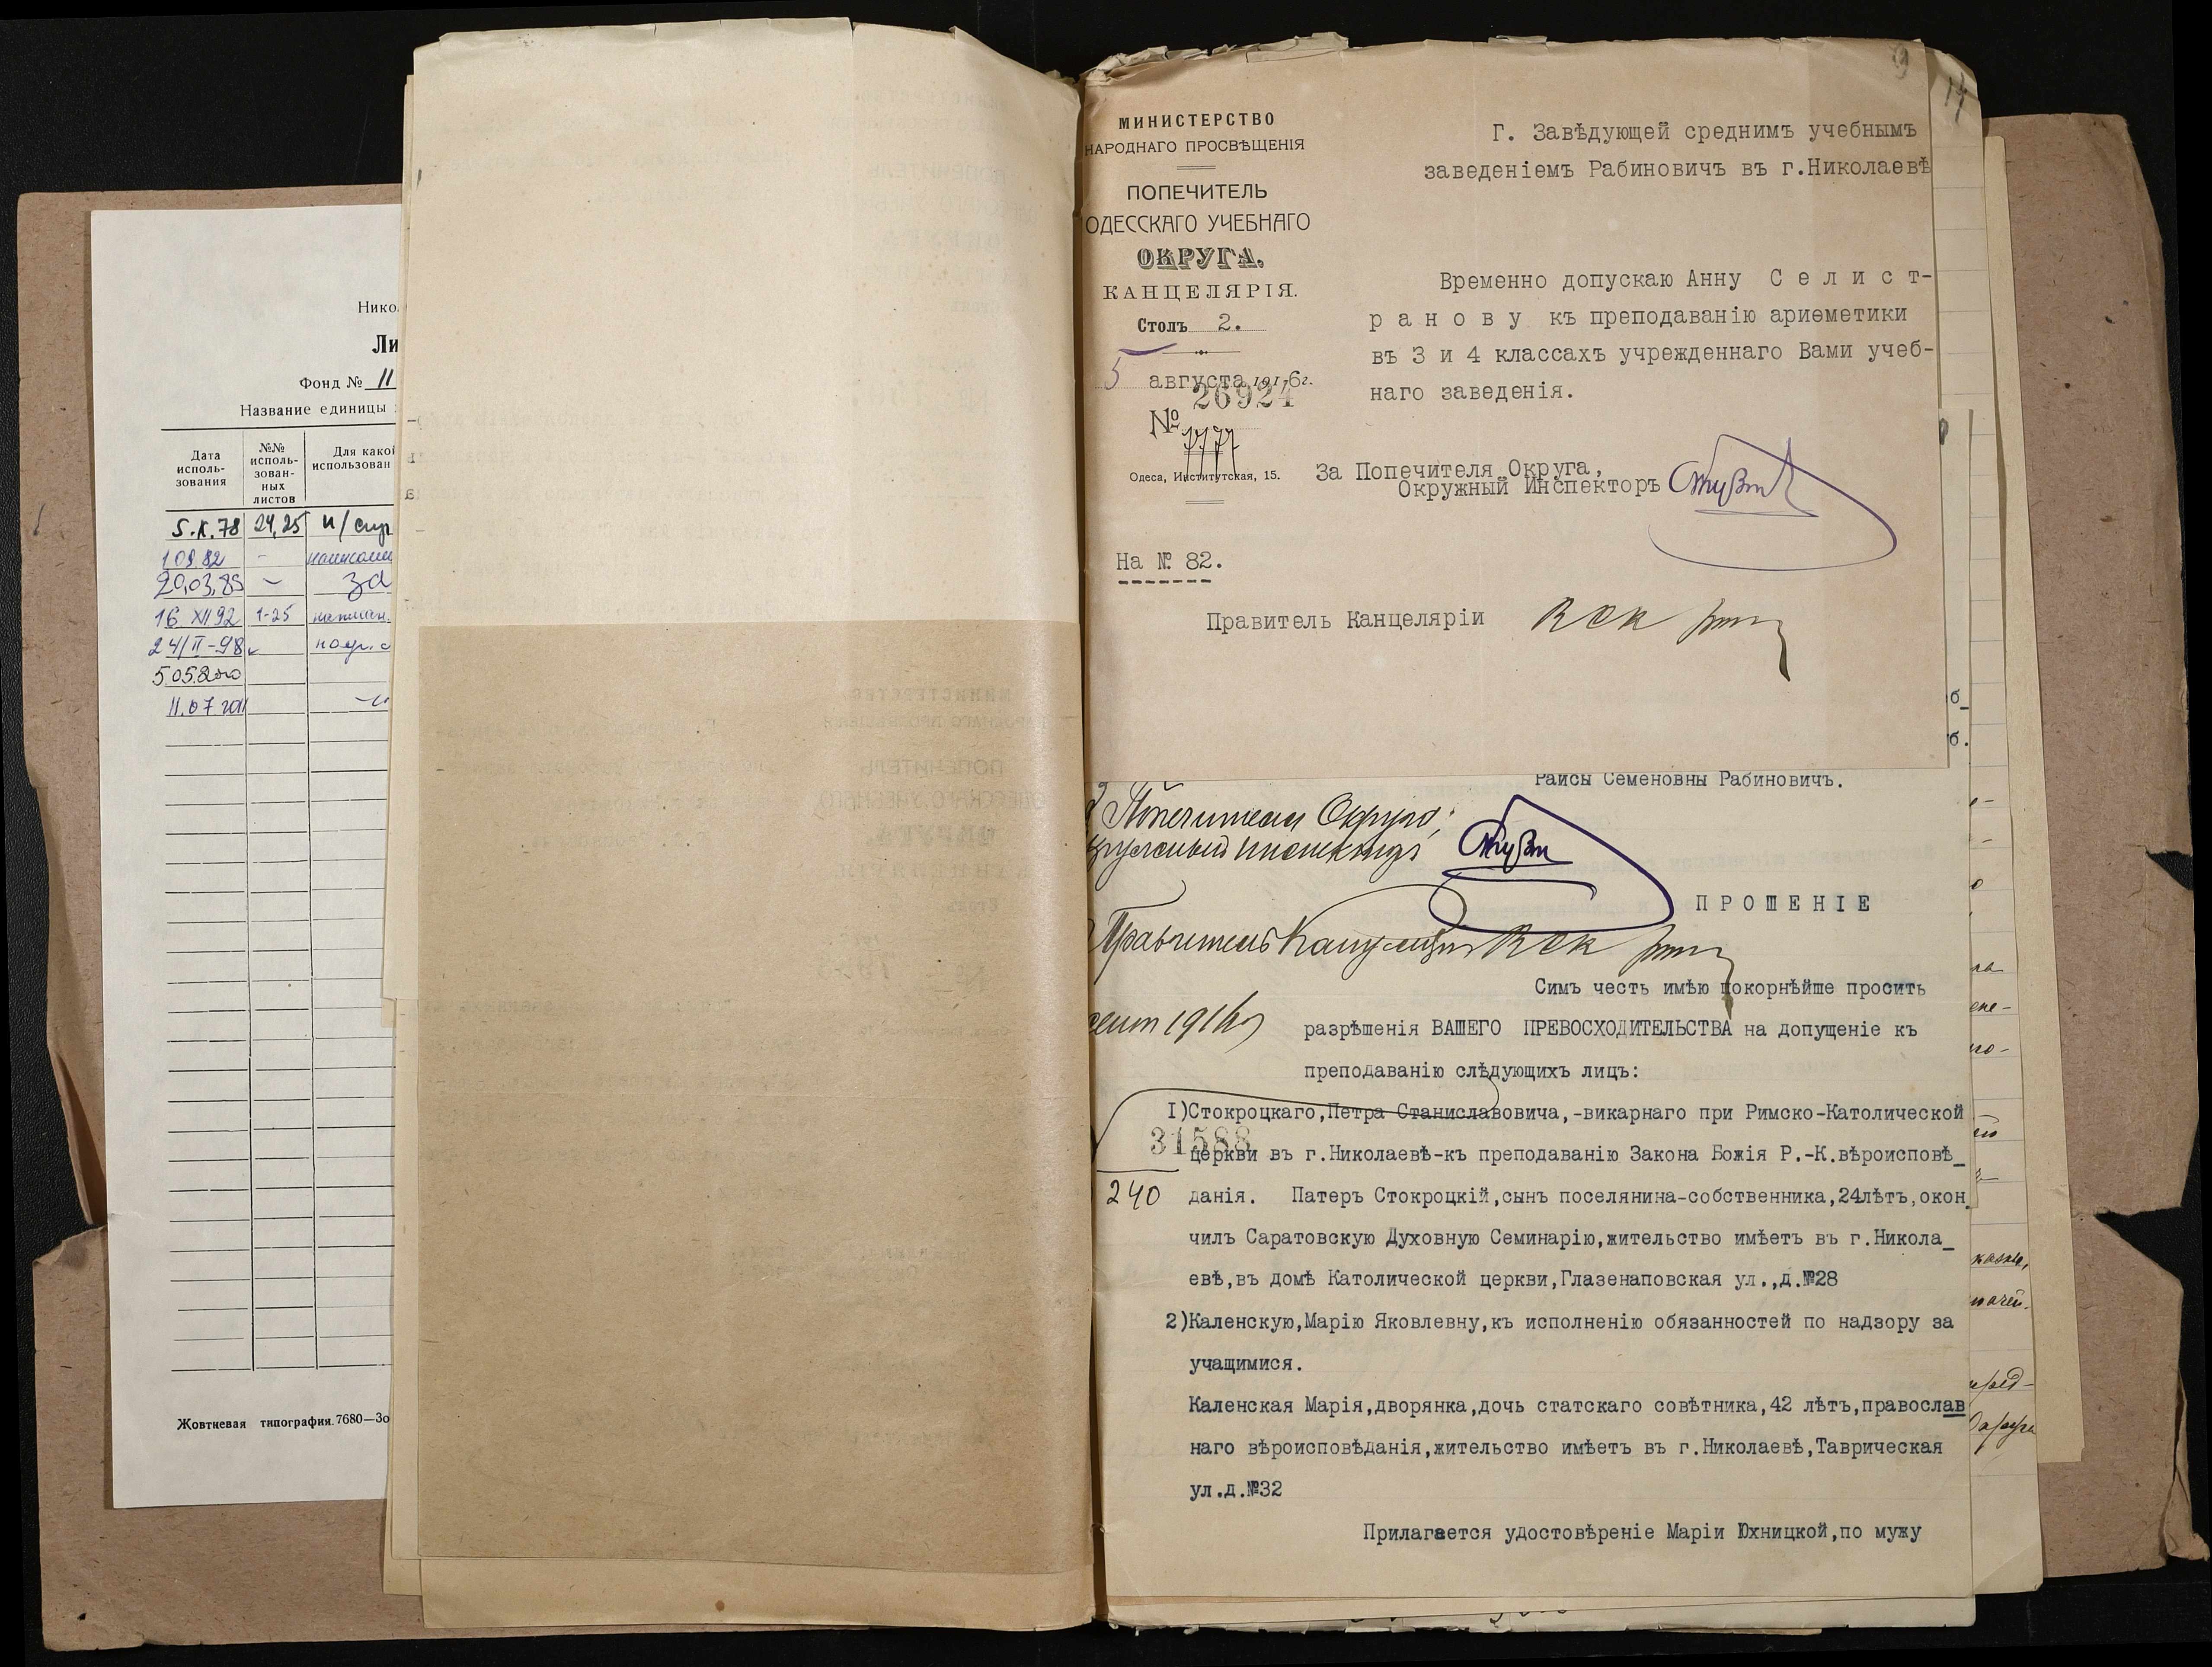 Нико
Ли
Фонд № 11
Название единицы
Дата исполь- зования
№№ исполь- зован- ных листов
Для како
использован
5.X.78 24,25
1.09.82 -
20.03.85 -
16 XII 92 1-25
24/II-98
5.05.2000
11.07.2011
Жовтневая типография. 7680—3о
9
14
МИНИСТЕРСТВО
НАРОДНАГО ПРОСВѢЩЕНІЯ
ПОПЕЧИТЕЛЬ
ОДЕССКАГО УЧЕБНАГО
ОКРУГА.
КАНЦЕЛЯРІЯ.
Столъ 2.
5 августа 1916г.
26924
№
Одеса, Институтская, 15.
На № 82.
Г. Завѣдующей среднимъ учебнымъ
заведеніемъ Рабиновичъ въ г.Николаевѣ
Временно допускаю Анну Селист-
ранову къ преподаванію ариѳметики
въ 3 и 4 классахъ учрежденнаго Вами учеб-
наго заведенія.
За Попечителя Округа,
Окружный Инспекторъ
Правитель Канцеляріи
Раисы Семеновны Рабиновичъ.
Попечителя Округа,
Инспекторъ
ПРОШЕНІЕ
Правитель Канцеляріи
Симъ честь имѣю покорнѣйше просить
1916
разрѣшенія ВАШЕГО ПРЕВОСХОДИТЕЛЬСТВА на допущеніе къ
преподаванію слѣдующихъ лицъ:
I)Стокроцкаго,Петра Станиславовича,-викарнаго при Римско-Католической
31588
церкви въ г.Николаевѣ-къ преподаванію Закона Божія Р.-К.вѣроисповѣ_
240
данія. Патеръ Стокроцкій,сынъ поселянина-собственника,24лѣтъ,окон_
чилъ Саратовскую Духовную Семинарію,жительство имѣетъ въ г.Никола_
евѣ,въ домѣ Католической церкви,Глазенаповская ул.,д.№28
2)Каленскую,Марію Яковлевну,къ исполненію обязанностей по надзору за
учащимися.
Каленская Марія,дворянка,дочь статскаго совѣтника,42 лѣтъ,православ
наго вѣроисповѣданія,жительство имѣетъ въ г.Николаевѣ,Таврическая
ул.д.№32
Прилагается удостовѣреніе Маріи Юхницкой,по мужу